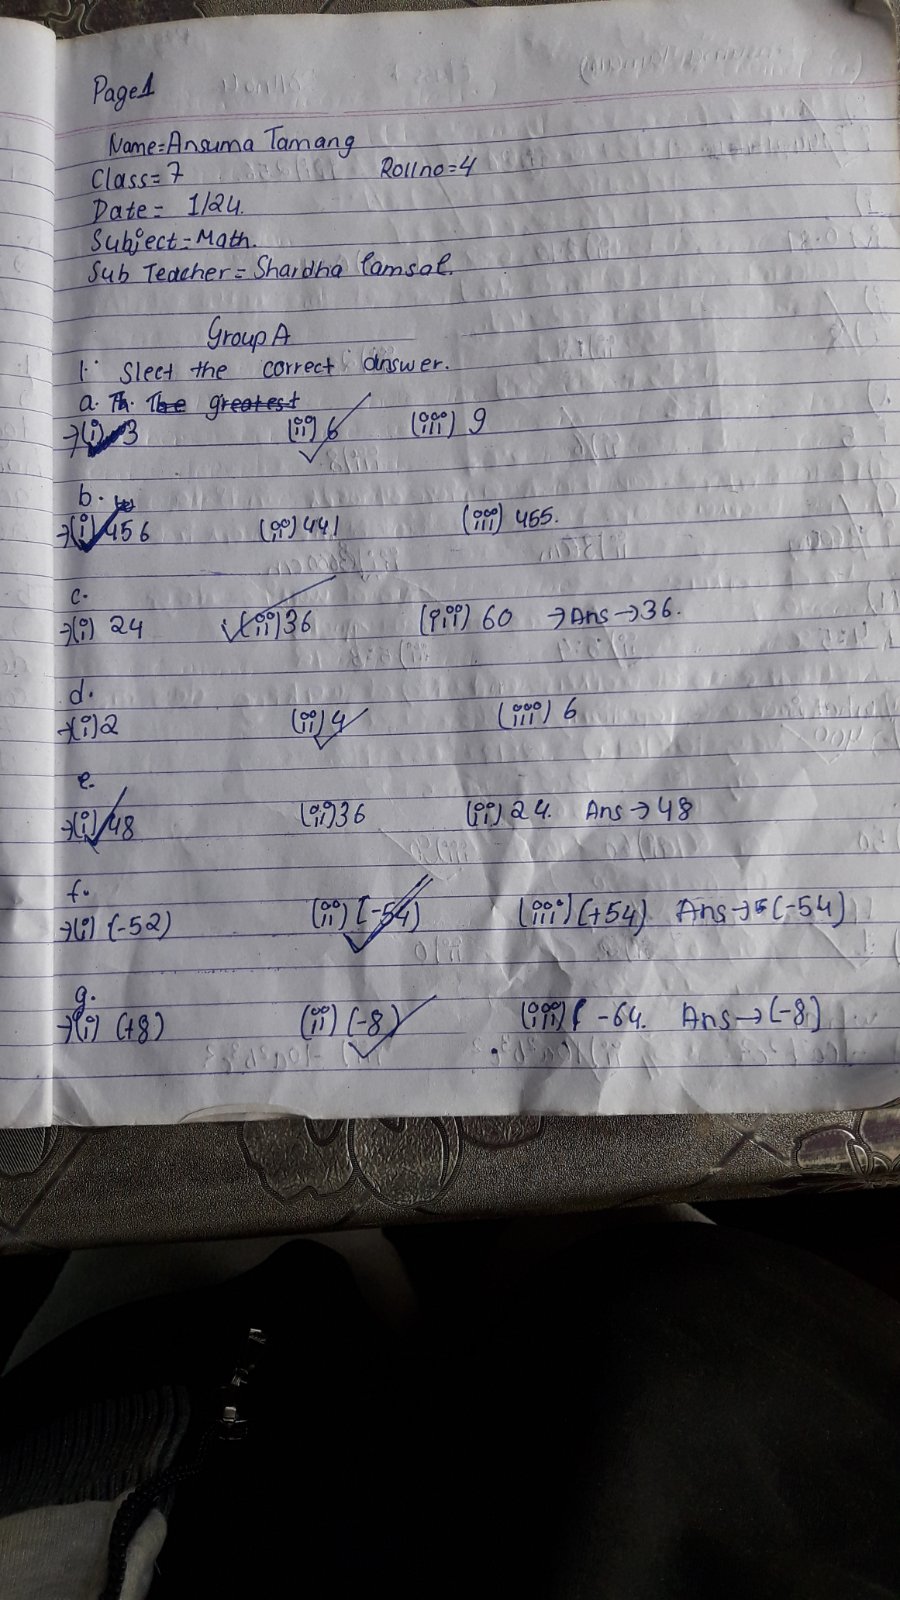 Page1
Name=Ansuma Tamang
Class=7 Rollno=4
Date= 1/24.
Subject=Math.
Sub Teacher= Shardha lamsal.
Group A
1. Slect the correct answer.
a. Th. The greatest
→(i) 3 (ii) 6 (iii) 9
b.
→(i) 456 (ii) 441 (iii) 455.
c.
→(i) 24 (ii) 36 (iii) 60 →Ans→36.
d.
→(i) 2 (ii) 4 (iii) 6
e.
→(i) 48 (ii) 36 (ii) 24. Ans→48
f.
→(i) (-52) (ii) (-54) (iii) (+54) Ans→(-54)
g.
→(i) (+8) (ii) (-8) (iii) -64. Ans→(-8)